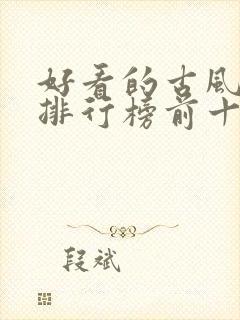 好看的古风
排行榜前十
段斌